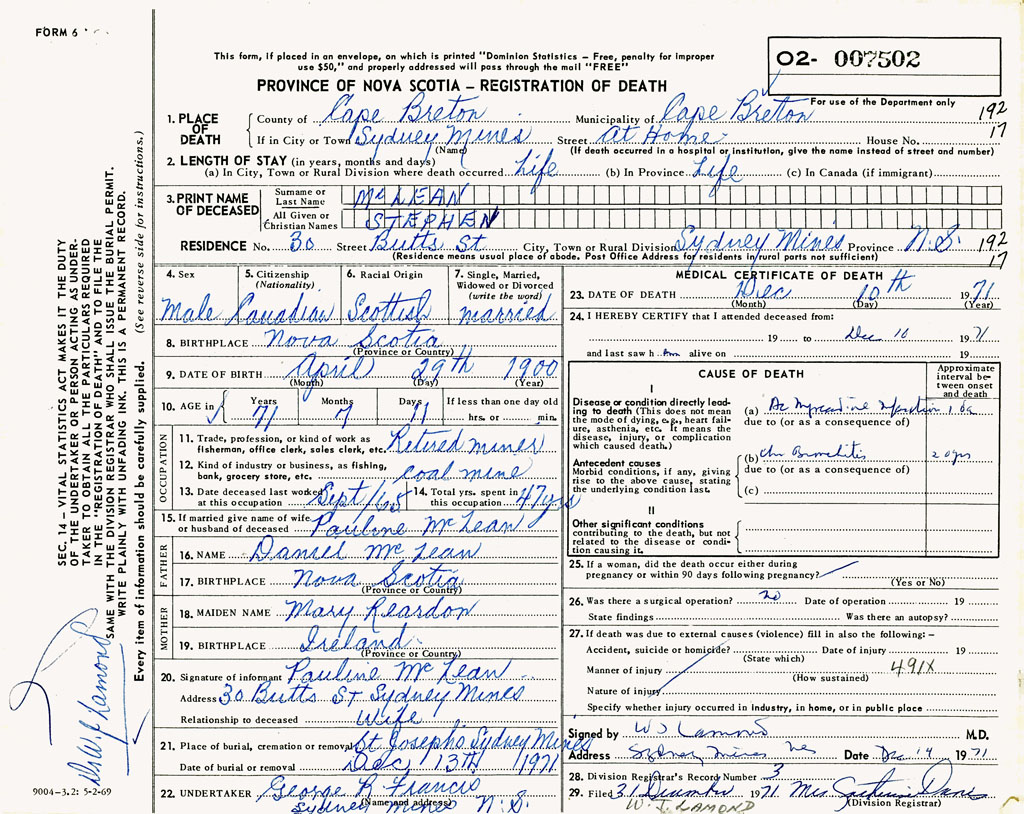 FORM 6
This form, if placed in an envelope, on which is printed "Dominion Statistics – Free, penalty for improper
use $50," and properly addressed will pass through the mail "FREE"
O2- 007502
PROVINCE OF NOVA SCOTIA – REGISTRATION OF DEATH
For use of the Department only
1. PLACE OF DEATH
County of Cape Breton Municipality of Cape Breton 192
If in City or Town Sydney Mines Street At Home House No. 17
(Name) (If death occurred in a hospital or institution, give the name instead of street and number)
2. LENGTH OF STAY (in years, months and days)
(a) In City, Town or Rural Division where death occurred Life (b) In Province Life (c) In Canada (if immigrant)
3. PRINT NAME OF DECEASED
Surname or Last Name McLEAN
All Given or Christian Names STEPHEN
RESIDENCE No. 30 Street Butts St City, Town or Rural Division Sydney Mines Province N.S. 192
(Residence means usual place of abode. Post Office Address for residents in rural parts not sufficient) 17
4. Sex Male
5. Citizenship (Nationality) Canadian
6. Racial Origin Scottish
7. Single, Married, Widowed or Divorced (write the word) married
8. BIRTHPLACE Nova Scotia
(Province or Country)
9. DATE OF BIRTH April 29th 1900
(Month) (Day) (Year)
10. AGE in Years 71 Months 7 Days 11 If less than one day old hrs. or min.
OCCUPATION
11. Trade, profession, or kind of work as fisherman, office clerk, sales clerk, etc. Retired miner
12. Kind of industry or business, as fishing, bank, grocery store, etc. coal mine
13. Date deceased last worked at this occupation Sept/65
14. Total yrs. spent in this occupation 47 yrs
15. If married give name of wife or husband of deceased Pauline McLean
FATHER
16. NAME Daniel McLean
17. BIRTHPLACE Nova Scotia
(Province or Country)
MOTHER
18. MAIDEN NAME Mary Reardon
19. BIRTHPLACE Ireland
(Province or Country)
20. Signature of informant Pauline McLean
Address 30 Butts St Sydney Mines
Relationship to deceased Wife
21. Place of burial, cremation or removal St Josephs Sydney Mines
Date of burial or removal Dec 13th 1971
22. UNDERTAKER George R Francis
(Name and address)
Sydney Mines N.S.
MEDICAL CERTIFICATE OF DEATH
23. DATE OF DEATH Dec 10th 1971
(Month) (Day)
24. I HEREBY CERTIFY that I attended deceased from:
19 to Dec 10 1971
and last saw him alive on 19
CAUSE OF DEATH
Approximate interval between onset and death
I
Disease or condition directly leading to death (This does not mean the mode of dying, e.g., heart failure, asthenia, etc. It means the disease, injury, or complication which caused death.)
(a) Ac Myocardial Infarction 1 da
due to (or as a consequence of)
Antecedent causes
Morbid conditions, if any, giving rise to the above cause, stating the underlying condition last.
(b) Chr Bronchitis 20 yrs
due to (or as a consequence of)
(c)
II
Other significant conditions
contributing to the death, but not related to the disease or condition causing it.
25. If a woman, did the death occur either during pregnancy or within 90 days following pregnancy?
(Yes or No)
26. Was there a surgical operation? no Date of operation 19
State findings Was there an autopsy?
27. If death was due to external causes (violence) fill in also the following: –
Accident, suicide or homicide? Date of injury 19
(State which)
Manner of injury 491X
(How sustained)
Nature of injury
Specify whether injury occurred in industry, in home, or in public place
Signed by W J Lamond M.D.
Address Sydney Mines NS Date Dec 14 1971
28. Division Registrar's Record Number 3
29. Filed 31 December 1971 Mrs
(Division Registrar)
W. J. LAMOND
SEC. 14 – VITAL STATISTICS ACT MAKES IT THE DUTY
OF THE UNDERTAKER OR PERSON ACTING AS UNDER-
TAKER TO OBTAIN ALL THE PARTICULARS REQUIRED
IN THE "REGISTRATION OF DEATH" AND TO FILE THE
SAME WITH THE DIVISION REGISTRAR WHO SHALL ISSUE THE BURIAL PERMIT.
WRITE PLAINLY WITH UNFADING INK. THIS IS A PERMANENT RECORD.
Every item of information should be carefully supplied. (See reverse side for instructions.)
Dr W J Lamond
9004-3.2: 5-2-69